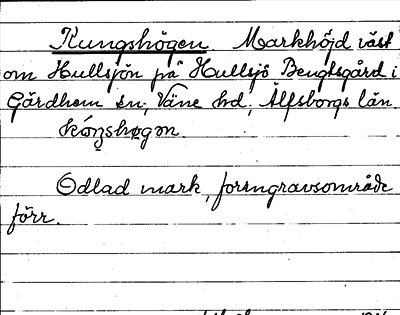 Kungshögen. Markhöjd väst
om Hullsjön på Hullsjö Bengtsgård i
Gärdhem sn, Väne hd, Älfsborgs län.
Odlad mark, forngravsområde
förr.